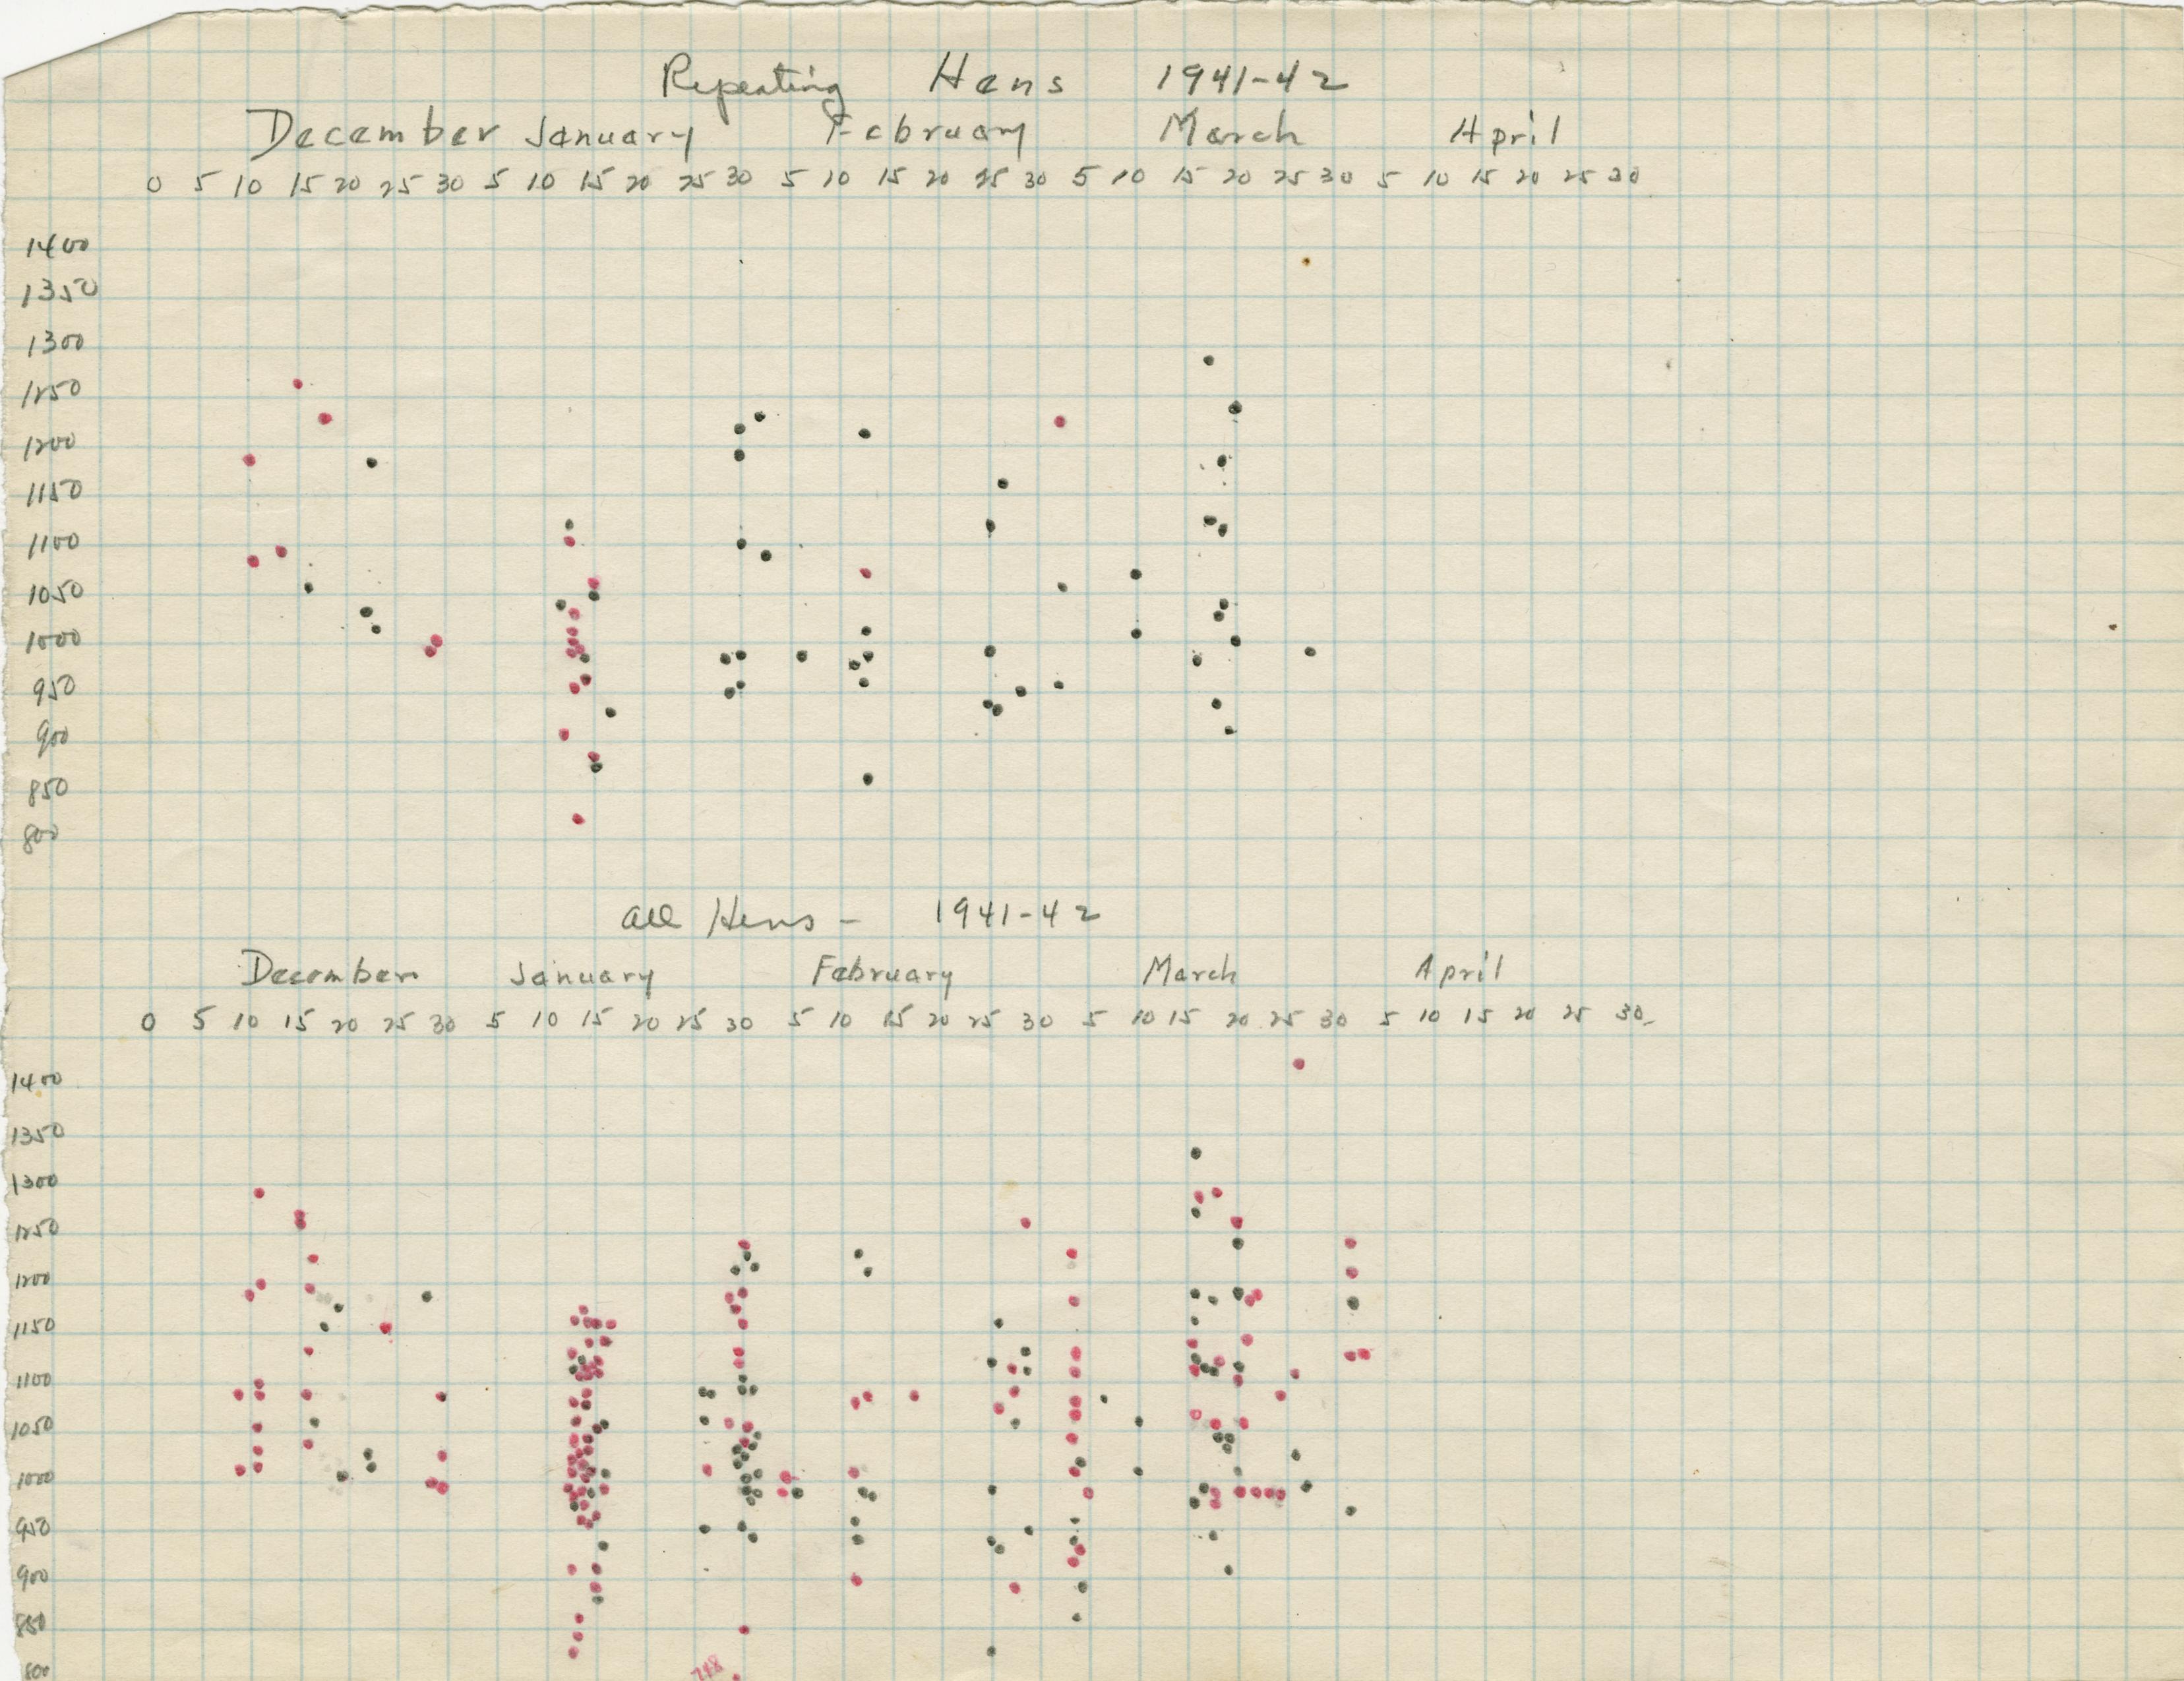 Repeating Hens 1941-42
December January February March April
0 5 10 15 20 25 30 5 10 15 20 25 30 5 10 15 20 25 30 5 10 15 20 25 30 5 10 15 20 25 30
1400
1350
1300
1250
1200
1150
1100
1050
1000
950
900
850
800
All Hens - 1941-42
December January February March April
0 5 10 15 20 25 30 5 10 15 20 25 30 5 10 15 20 25 30 5 10 15 20 25 30 5 10 15 20 25 30
1400
1350
1300
1250
1200
1150
1100
1050
1000
950
900
850
800